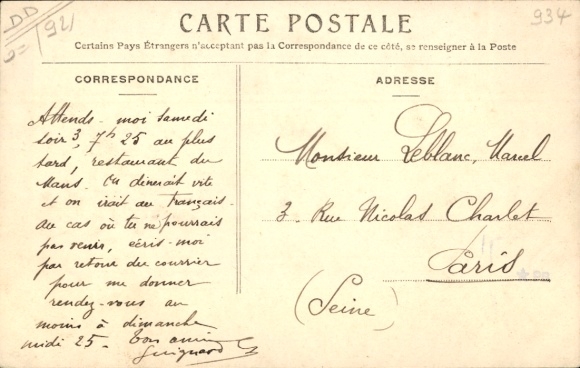 CARTE POSTALE
Certains Pays Étrangers n'acceptant pas la Correspondance de ce côté, se renseigner à la Poste
CORRESPONDANCE
Attends-moi samedi
soir 3, 7h 25 au plus
tard, restaurant du
Mans. On dînerait vite
et on irait au français.
Au cas où tu ne pourrais
pas venir, écris-moi
par retour du courrier
pour me donner
rendez-vous au
moins à dimanche
midi 25. Ton ami
Guignard
ADRESSE
Monsieur Leblanc, Marcel
3 Rue Nicolas Charlet
Paris
(Seine)
DD
1921
934